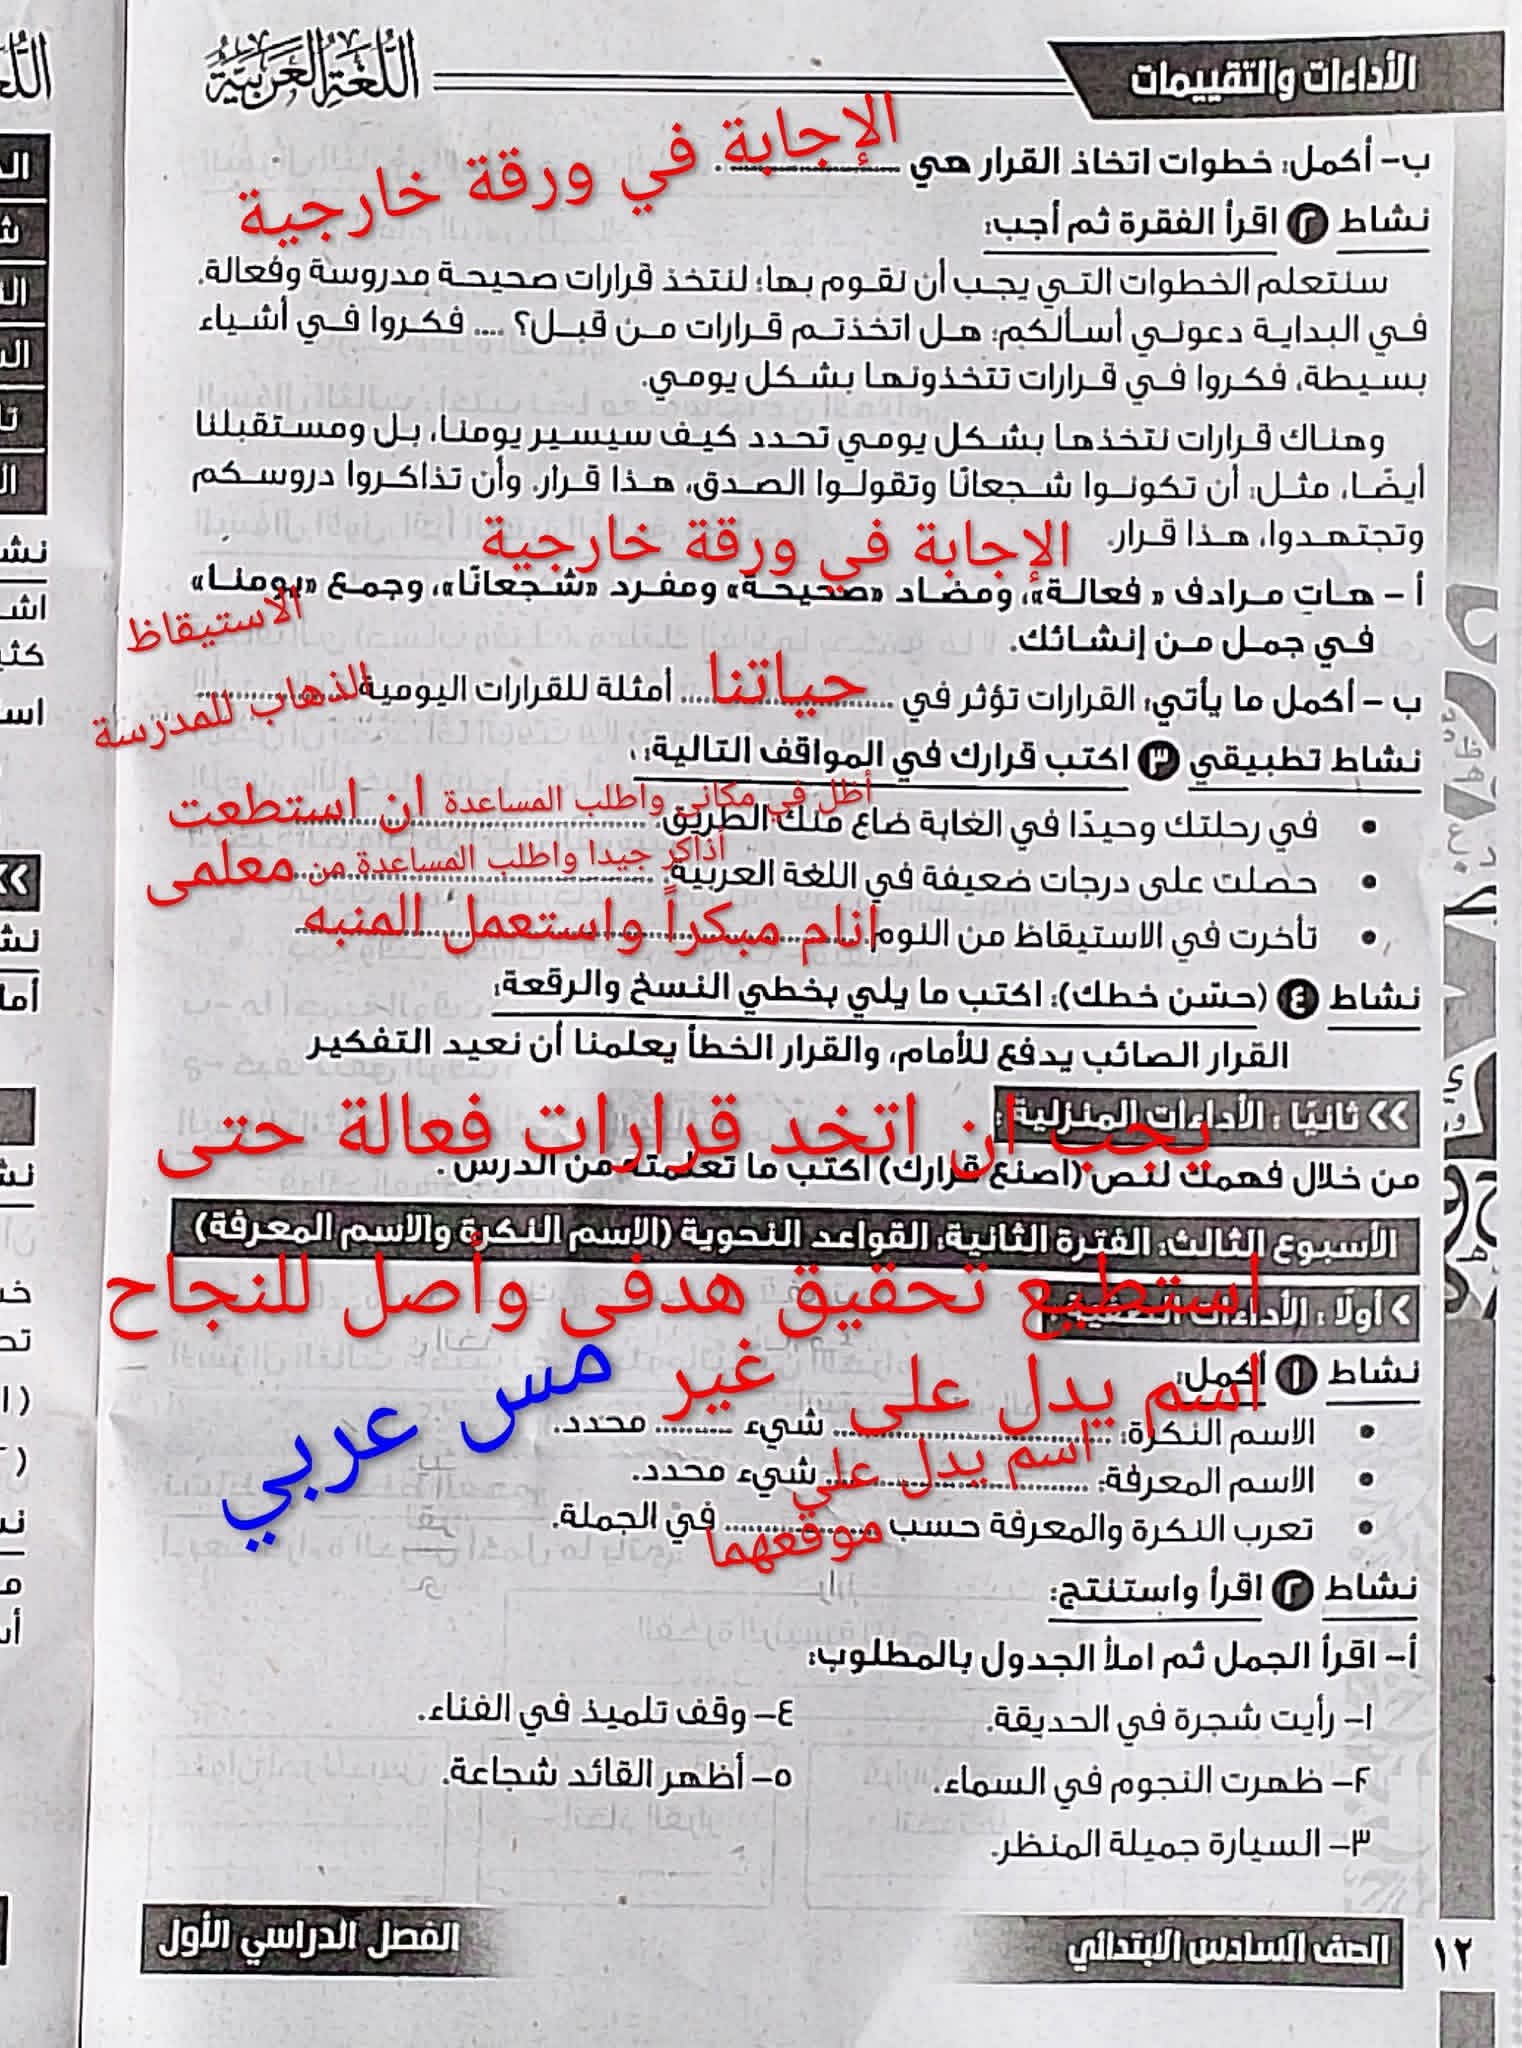 الأداءات والتقييمات
اللغة العربية
ب- أكمل: خطوات اتخاذ القرار هي ............ .
الإجابة في ورقة خارجية
نشاط ٢ اقرأ الفقرة ثم أجب:
سنتعلم الخطوات التي يجب أن نقوم بها؛ لنتخذ قرارات صحيحة مدروسة وفعالة.
في البداية دعوني أسألكم: هل اتخذتم قرارات من قبل؟ .... فكروا في أشياء
بسيطة، فكروا في قرارات تتخذونها بشكل يومي.
وهناك قرارات نتخذها بشكل يومي تحدد كيف سيسير يومنا، بل ومستقبلنا
أيضًا، مثل: أن تكونوا شجعانًا وتقولوا الصدق، هذا قرار. وأن تذاكروا دروسكم
وتجتهدوا، هذا قرار.
الإجابة في ورقة خارجية
أ - هات مرادف « فعالة»، ومضاد «صحيحة» ومفرد «شجعانًا»، وجمع «يومنا»
في جمل من إنشائك.
الاستيقاظ
ب - أكمل ما يأتي: القرارات تؤثر في ............ أمثلة للقرارات اليومية ............
حياتنا
الذهاب للمدرسة
نشاط تطبيقي ٣ اكتب قرارك في المواقف التالية:
أظل في مكانى واطلب المساعدة ان استطعت
• في رحلتك وحيدًا في الغابة ضاع منك الطريق. ............
أذاكر جيدا واطلب المساعدة من معلمى
• حصلت على درجات ضعيفة في اللغة العربية. ............
• تأخرت في الاستيقاظ من النوم ............
انام مبكراً واستعمل المنبه
نشاط ٤ (حسّن خطك): اكتب ما يلي بخطي النسخ والرقعة:
القرار الصائب يدفع للأمام، والقرار الخطأ يعلمنا أن نعيد التفكير
>> ثانيًا : الأداءات المنزلية :
يجب ان اتخد قرارات فعالة حتى
من خلال فهمك لنص (اصنع قرارك) اكتب ما تعلمته من الدرس .
الأسبوع الثالث: الفترة الثانية: القواعد النحوية (الاسم النكرة والاسم المعرفة)
استطيع تحقيق هدفى وأصل للنجاح
> أولًا : الأداءات الصفية :
نشاط ١ أكمل:
اسم يدل على غير
• الاسم النكرة: ............ شيء ........ محدد.
اسم يدل على
• الاسم المعرفة: ............ شيء محدد.
• تعرب النكرة والمعرفة حسب ............ في الجملة.
موقعهما
مس عربي
نشاط ٢ اقرأ واستنتج:
أ- اقرأ الجمل ثم املأ الجدول بالمطلوب:
١- رأيت شجرة في الحديقة.
٤- وقف تلميذ في الفناء.
٢- ظهرت النجوم في السماء.
٥- أظهر القائد شجاعة.
٣- السيارة جميلة المنظر.
١٢
الصف السادس الابتدائي
الفصل الدراسي الأول